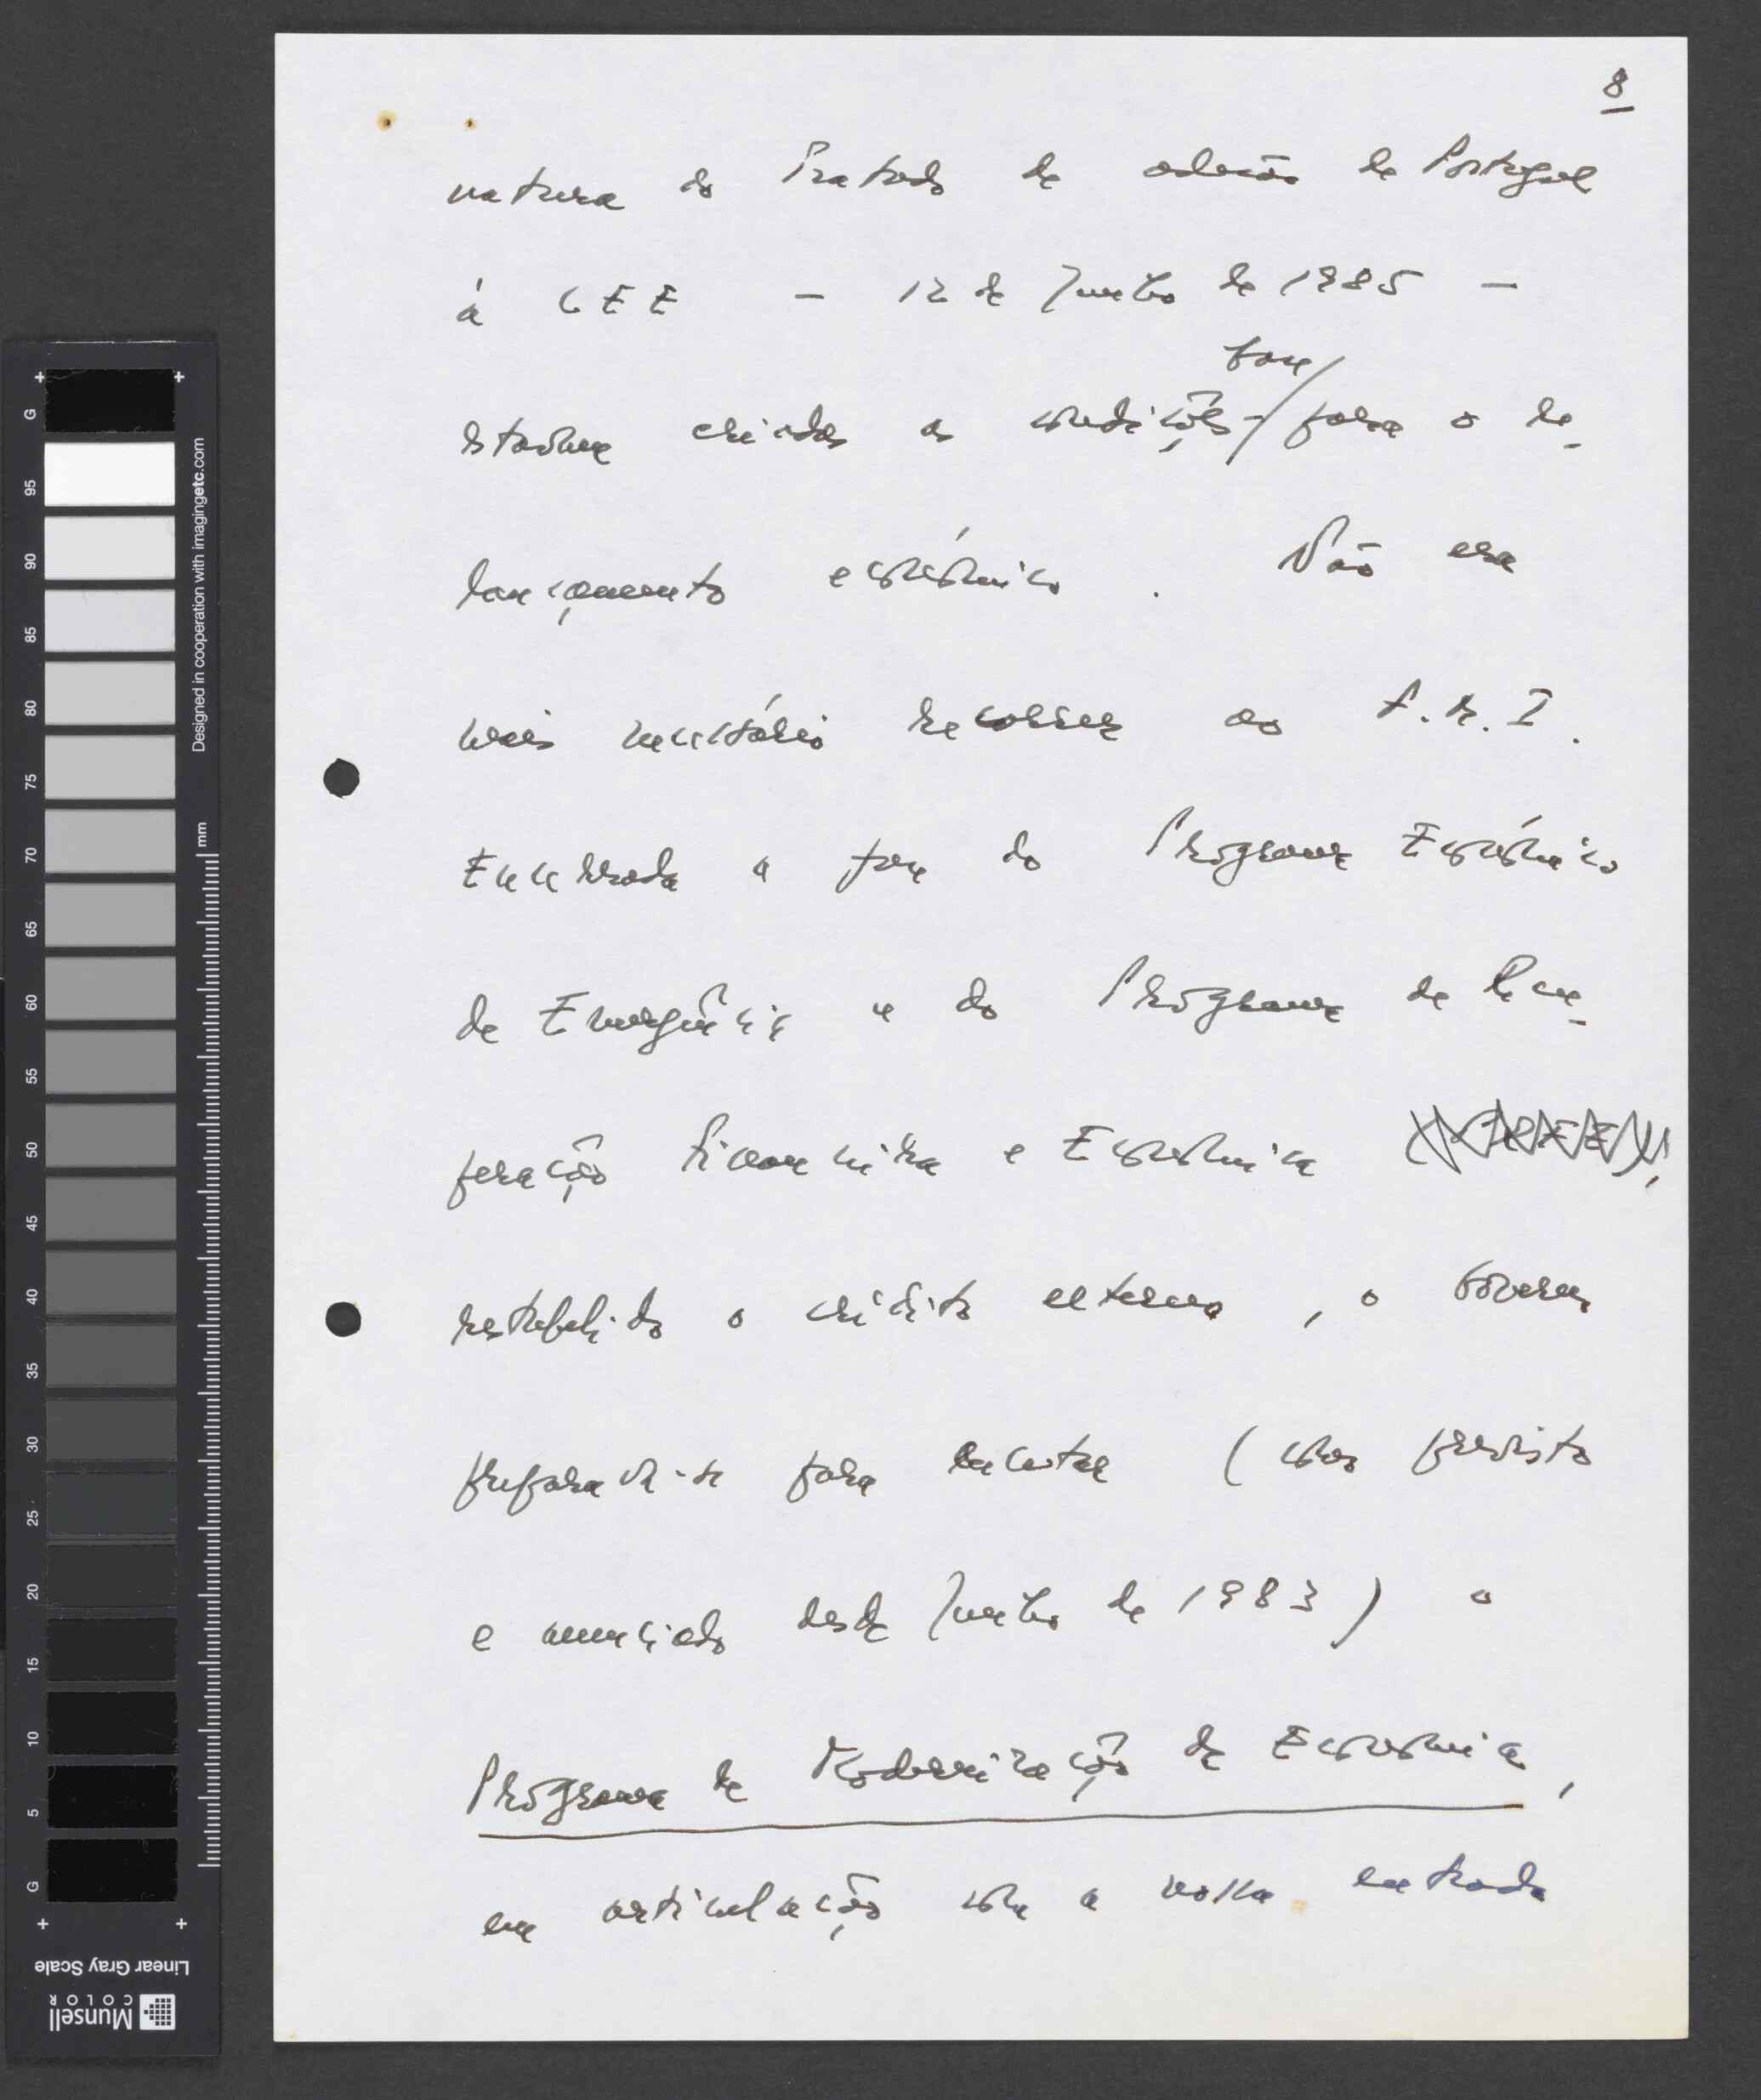 8
natura do Tratado de adesão de Portugal
à CEE – 12 de Junho de 1985 –
estavam criadas as condições para o re-
lançamento económico. Não era
mais necessário recorrer ao F.M.I.
Encerrada a fase do Programa Económico
de Emergência e do Programa de Recu-
peração Financeira e Económica,
restabelecido o crédito externo, o Governo
preparava-se para encetar (como previsto
e anunciado desde Junho de 1983) o
Programa de Modernização da Economia,
em articulação com a nossa entrada
G 95 90 85 80 75 70 65 60 55 50 45 40 35 30 25 20 15 10 5 G
Designed in cooperation with imagingetc.com
mm
Linear Gray Scale
Munsell
COLOR